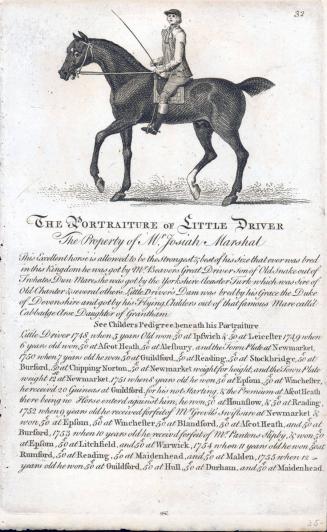 32
The Portraiture of Little Driver
The Property of Mr. Josiah Marshal
This Excellent horse is allowed to be the strongest & best of his size that ever was bred
in this Kingdom he was got by Mr. Beavers Great Driver Son of Old Snake out of
Dun Mare, she was got by the Yorkshire Coaster Turk which was Sire of
Old Chanter & several others. Little Drivers Dam was bred by his Grace the Duke
of Devonshire and got by his Flying Childers out of that famous Mare call'd
Cabbadge Arse Daughter of Grantham
See Childers Pedigree beneath his Portraiture
Little Driver 1748, when 5 years Old won, 50 at Ipswich & 50 at Leicester 1749 when
6 years old won, 50 at Ascot Heath, 50 at Alesbury, and the Town Plate at Newmarket,
1750 when 7 years old he won 50 at Guildford, 50 at Reading, 50 at Stockbridge, 50 at
Burford, 50 at Chipping Norton, 50 at Newmarket weight for height, and the Town Plate
weight 12 at Newmarket, 1751 when 8 years old he won, 50 at Epsom, 50 at Winchester,
he received 20 Guineas at Guildford, for his not starting, & the Premium at Ascot Heath
there being no Horse enterd against him, he won, 50 at Hounslow, & 50 at Reading
1752 when 9 years old he received forfeit of Mr. Grevills Swiftsure at Newmarket &
won, 50 at Epsom, 50 at Winchester, 50 at Blandford, 50 at Ascot Heath, and, 50 at
Burford, 1753 when 10 years old he receivd forfeit of Mr. Pantons Slipby, & won, 50
at Epsom, 50 at Litchfield, and, 50 at Warwick, 1754 when 11 years old he won, 50 at
Rumford, 50 at Reading, 50 at Maidenhead, and, 50 at Malden, 1755 when 12
years old he won, 50 at Guildford, 50 at Hull, 50 at Durham, and, 50 at Maidenhead